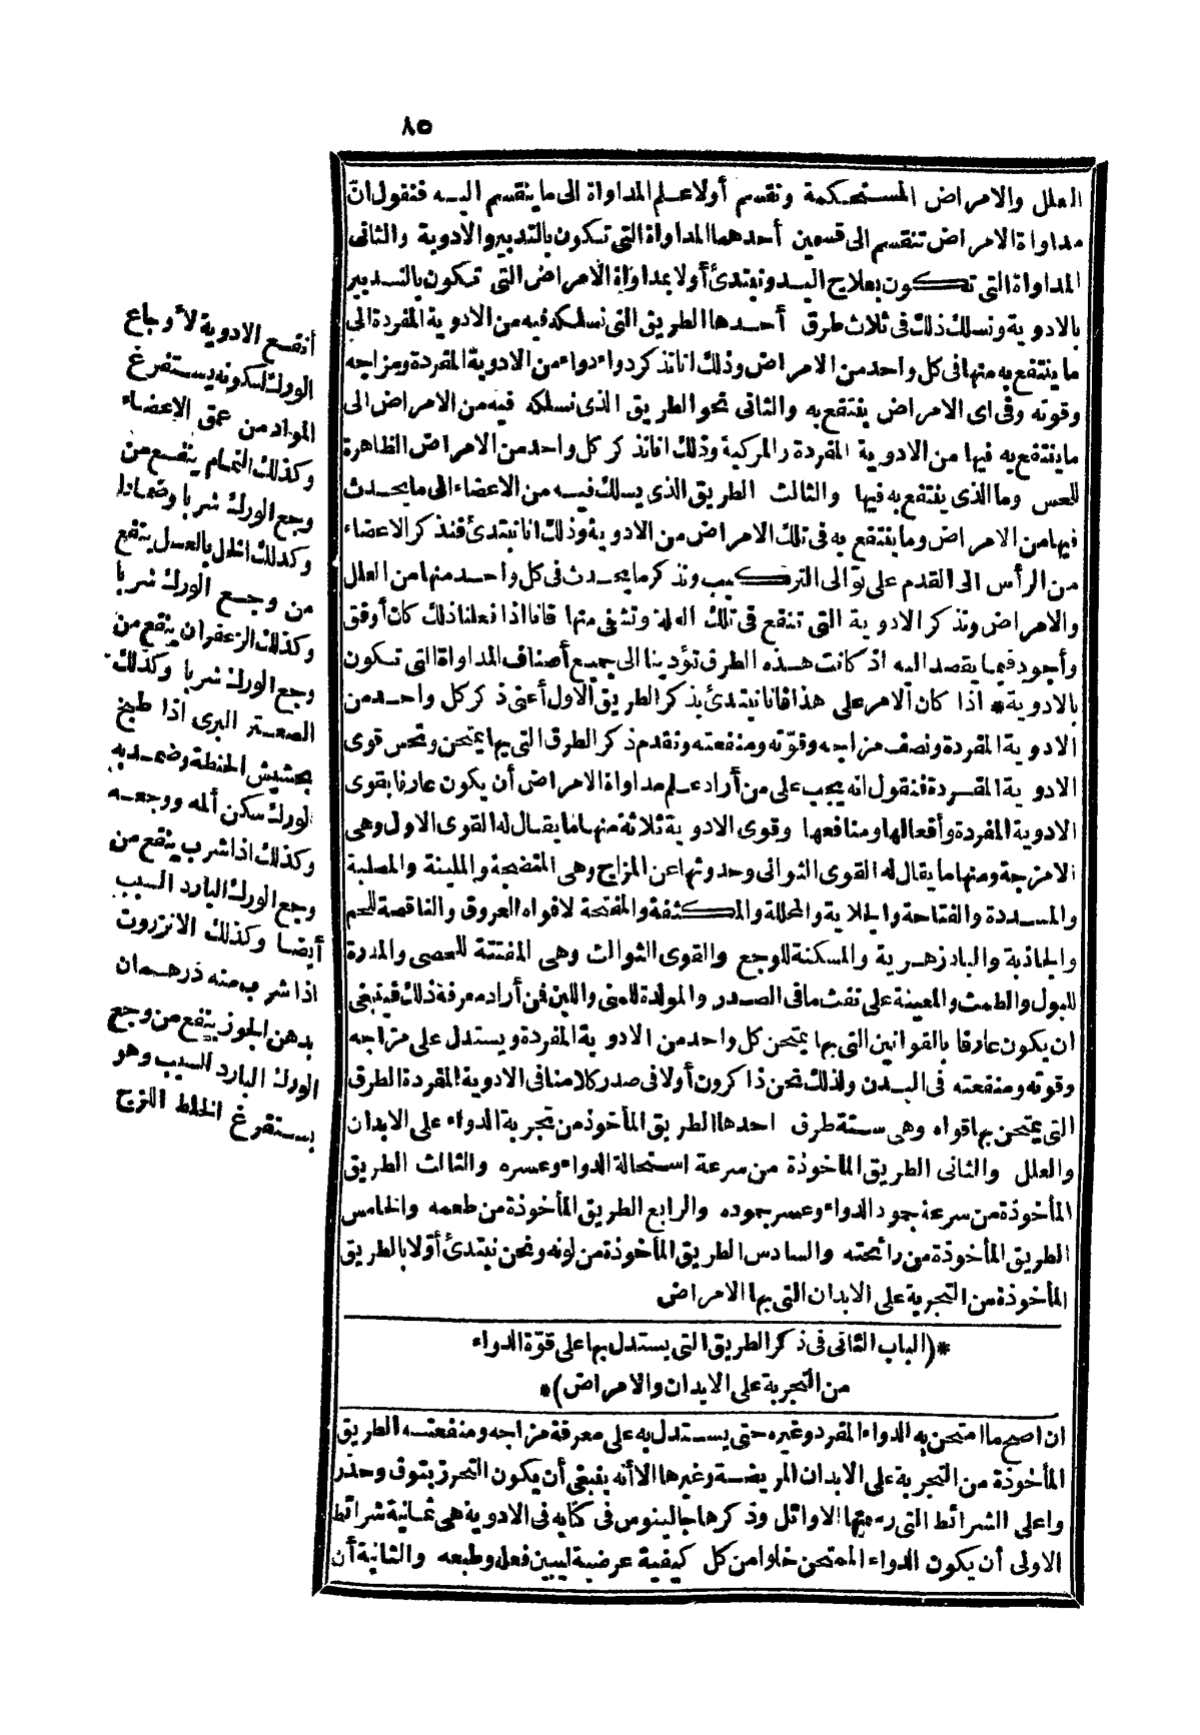 ٨٥
العلل والامراض المستحكمة ونقسم أولا علم المداواة الى ما ينقسم اليه فنقول ان
مداواة الامراض تنقسم الى قسمين أحدهما المداواة التى تكون بالتدبير والادوية والثانى
المداواة التى تكون بعلاج اليد ونبتدئ أولا بمداواة الامراض التى تكون بالتدبير
بالادوية ونسلك ذلك فى ثلاث طرق أحدها الطريق التى نسلك فيه من الادوية المفردة الى
ما ينتفع به منها فى كل واحد من الامراض وذلك انا نذكر دواء دواء من الادوية المفردة ومزاجه
وقوته وفى اى الامراض ينتفع به والثانى نحو الطريق الذى نسلكه فيه من الامراض الى
ما ينتفع به فيها من الادوية المفردة والمركبة وذلك انا نذكر كل واحد من الامراض الظاهرة
للحس وما الذى ينتفع به فيها والثالث الطريق الذى يسلك فيه من الاعضاء الى ما يحدث
فيها من الامراض وما ينتفع به فى تلك الامراض من الادوية وذلك انا نبتدئ فنذكر الاعضاء
من الرأس الى القدم على توالى التركيب ونذكر ما يحدث فى كل واحد منها من العلل
والامراض ونذكر الادوية التى تنفع فى تلك العلة وتشفى منها فانا اذا فعلنا ذلك كان أوفق
وأجود فيما يقصد اليه اذ كانت هذه الطرق تؤدينا الى جميع أصناف المداواة التى تكون
بالادوية* اذا كان الامر على هذا فانا نبتدئ بذكر الطريق الاول أعنى ذكر كل واحد من
الادوية المفردة ونصف مزاجه وقوّته ومنفعته ونقدم ذكر الطرق التى بها يمتحن ويحس قوى
الادوية المفردة فنقول انه يجب على من أراد علم مداواة الامراض أن يكون عارفا بقوى
الادوية المفردة وأفعالها ومنافعها وقوى الادوية ثلاثة منها ما يقال له القوى الاول وهى
الامزجة ومنها ما يقال له القوى الثوانى وحدوثها عن المزاج وهى المنضجة والملينة والمصلبة
والمسددة والفتاحة والجلاية والمحللة والمكثفة والمفتحة لافواه العروق والناقصة للحم
والجاذبة والبادزهرية والمسكنة للوجع والقوى الثوالث وهى المفتتة للحصى والمدرة
للبول والطمث والمعينة على نفث ما فى الصدر والمولدة للمنى واللبن فمن أراد معرفة ذلك فينبغى
ان يكون عارفا بالقوانين التى بها يمتحن كل واحد من الادوية المفردة ويستدل على مزاجه
وقوته ومنفعته فى البدن ولذلك نحن ذاكرون أولا فى صدر كلامنا فى الادوية المفردة الطرق
التى يمتحن بها قواه وهى ستة طرق احدها الطريق المأخوذ من تجربة الدواء على الابدان
والعلل والثانى الطريق المأخوذة من سرعة استحالة الدواء وعسره والثالث الطريق
المأخوذة من سرعة جمود الدواء وعسر جموده والرابع الطريق المأخوذة من طعمه والخامس
الطريق المأخوذة من رائحته والسادس الطريق المأخوذة من لونه ونحن نبتدئ أوّلا بالطريق
المأخوذة من التجربة على الابدان التى بها الامراض
*(الباب الثانى فى ذكر الطريق التى يستدل بها على قوّة الدواء
من التجربة على الابدان والامراض)*
ان اصح ما امتحن به الدواء المفرد وغيره حتى يستدل به على معرفة مزاجه ومنفعته الطريق
المأخوذة من التجربة على الابدان المريضة وغيرها الا أنه ينبغى أن يكون التحرز بتوق وحذر
واعلى الشرائط التى رسمتها الاوائل وذكرها جالينوس فى كتابه فى الادوية هى ثمانية شرائط
الاولى أن يكون الدواء الممتحن خلوا من كل كيفية عرضية ليبين فعله وطبعه والثانية أن
أنفع الادوية لأوجاع
الورك لكونه يستفرغ
المواد من عمق الاعضاء
وكذلك النمام ينفع من
وجع الورك شربا وضمادا
وكذلك الخل بالعسل ينفع
من وجع الورك شربا
وكذلك الزعفران ينفع من
وجع الورك شربا وكذلك
الصعتر البرى اذا طبخ
بجشيش الحنطة وضمد به
الورك سكن ألمه ووجعه
وكذلك اذا شرب ينفع من
وجع الورك البارد السبب
أيضا وكذلك الانزروت
اذا شرب منه درهمان
بدهن الجوز ينفع من وجع
الورك البارد السبب وهو
يستفرغ الخلط اللزج